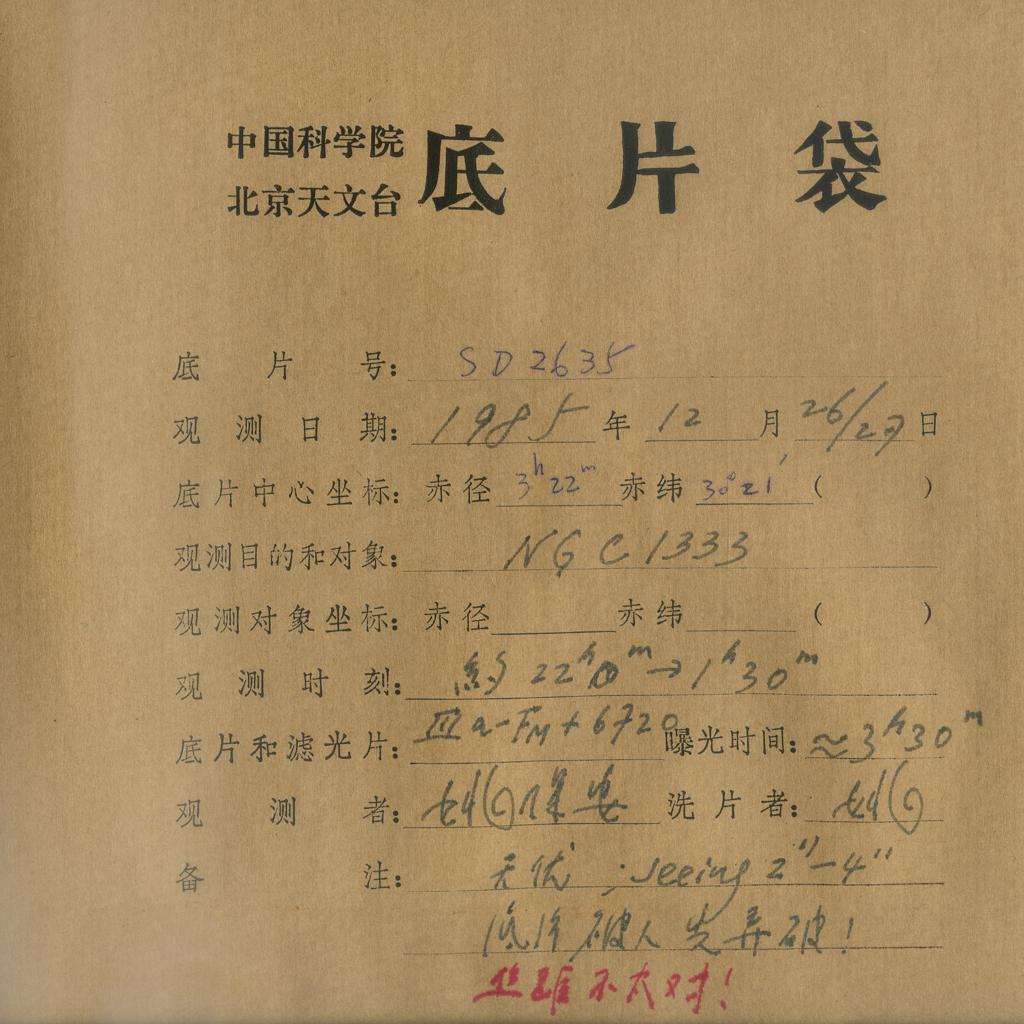 中国科学院
北京天文台
底片袋
底片号: SD2635
观测日期: 1985年12月26/27日
底片中心坐标: 赤径 3h22m 赤纬 30°21′ ( )
观测目的和对象: NGC1333
观测对象坐标: 赤径 赤纬 ( )
观测时刻: 約 22h10m→1h30m
底片和滤光片: IIIa-FM+6720 曝光时间: ≈3h30m
观测者: 保安 洗片者:
备注: 天优 ; seeing 2″-4″
底片破人 弄破!
距不大对!